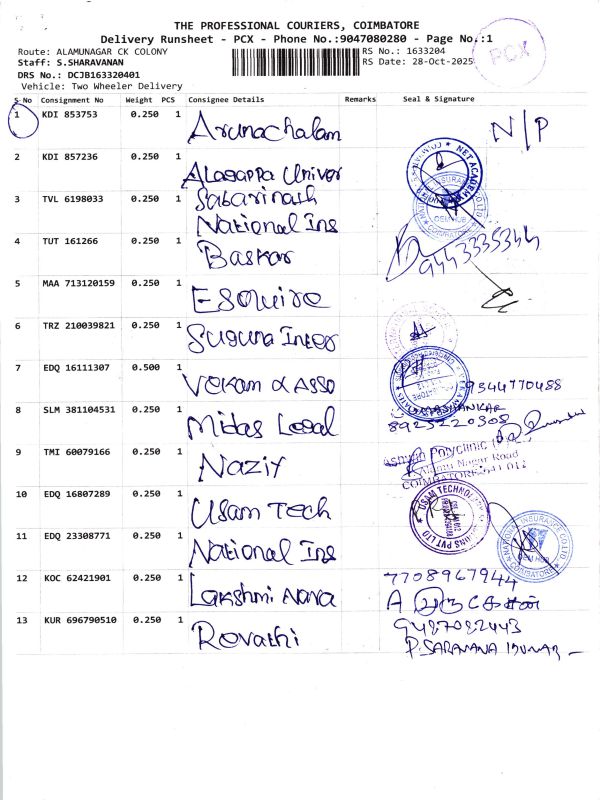 THE PROFESSIONAL COURIERS, COIMBATORE
Delivery Runsheet - PCX - Phone No.:9047080280 - Page No.:1
Route: ALAMUNAGAR CK COLONY
RS No.: 1633204
Staff: S.SHARAVANAN
RS Date: 28-Oct-2025
DRS No.: DCJB163320401
Vehicle: Two Wheeler Delivery
PCX
S No Consignment No Weight PCS Consignee Details Remarks Seal & Signature
1 KDI 853753 0.250 1 Arunachalam N/P
2 KDI 857236 0.250 1 Alagappa Univer
3 TVL 6198033 0.250 1 Sabarinath
National Ins
4 TUT 161266 0.250 1 Baskar 9443335344
5 MAA 713120159 0.250 1 Esquire
6 TRZ 210039821 0.250 1 Suguna Inter
7 EDQ 16111307 0.500 1 Vekam & Asso 9344770488
8 SLM 381104531 0.250 1 Midas Legal 8925220308
9 TMI 60079166 0.250 1 Nazir Ashwin Polyclinic
Nagar Road
COIMBATORE-641 012
10 EDQ 16807289 0.250 1 Usam Tech USAM TECHNOLOGY
11 EDQ 23308771 0.250 1 National Ins NATIONAL INSURANCE CO LTD
COIMBATORE
12 KOC 62421901 0.250 1 Lakshmi Nara 7708967944
13 KUR 696790510 0.250 1 Revathi 9487082443
P. SARAVANA KUMAR